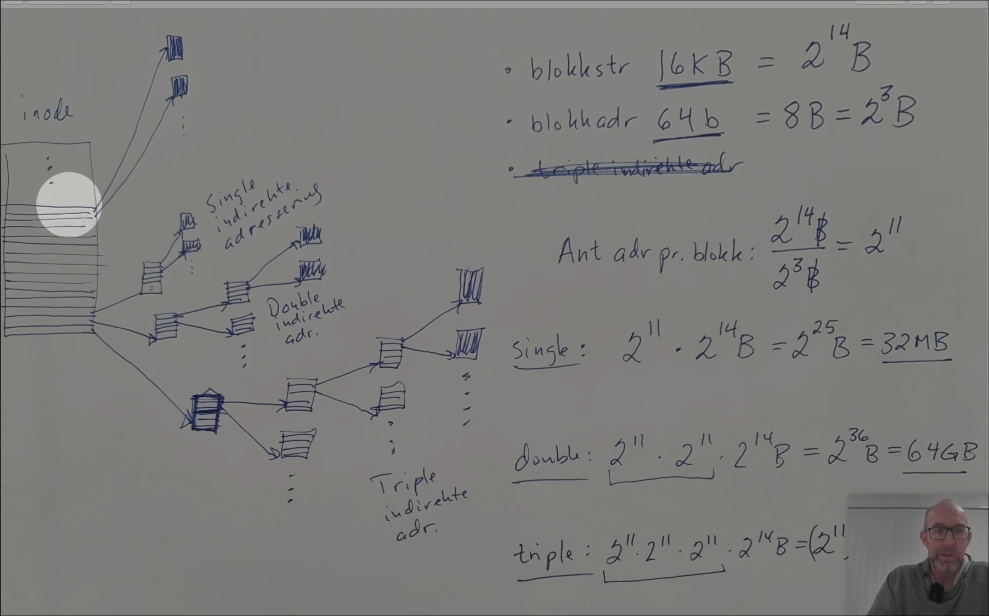 inode
Single
indirekte
adressering
Double
indirekte
adr.
Triple
indirekte
adr.
• blokkstr 16KB = 2^14 B
• blokkadr 64b = 8B = 2^3 B
• triple indirekte adr
Ant adr pr. blokk: 2^14 B / 2^3 B = 2^11
single: 2^11 · 2^14 B = 2^25 B = 32MB
double: 2^11 · 2^11 · 2^14 B = 2^36 B = 64GB
triple: 2^11 · 2^11 · 2^11 · 2^14 B = (2^11